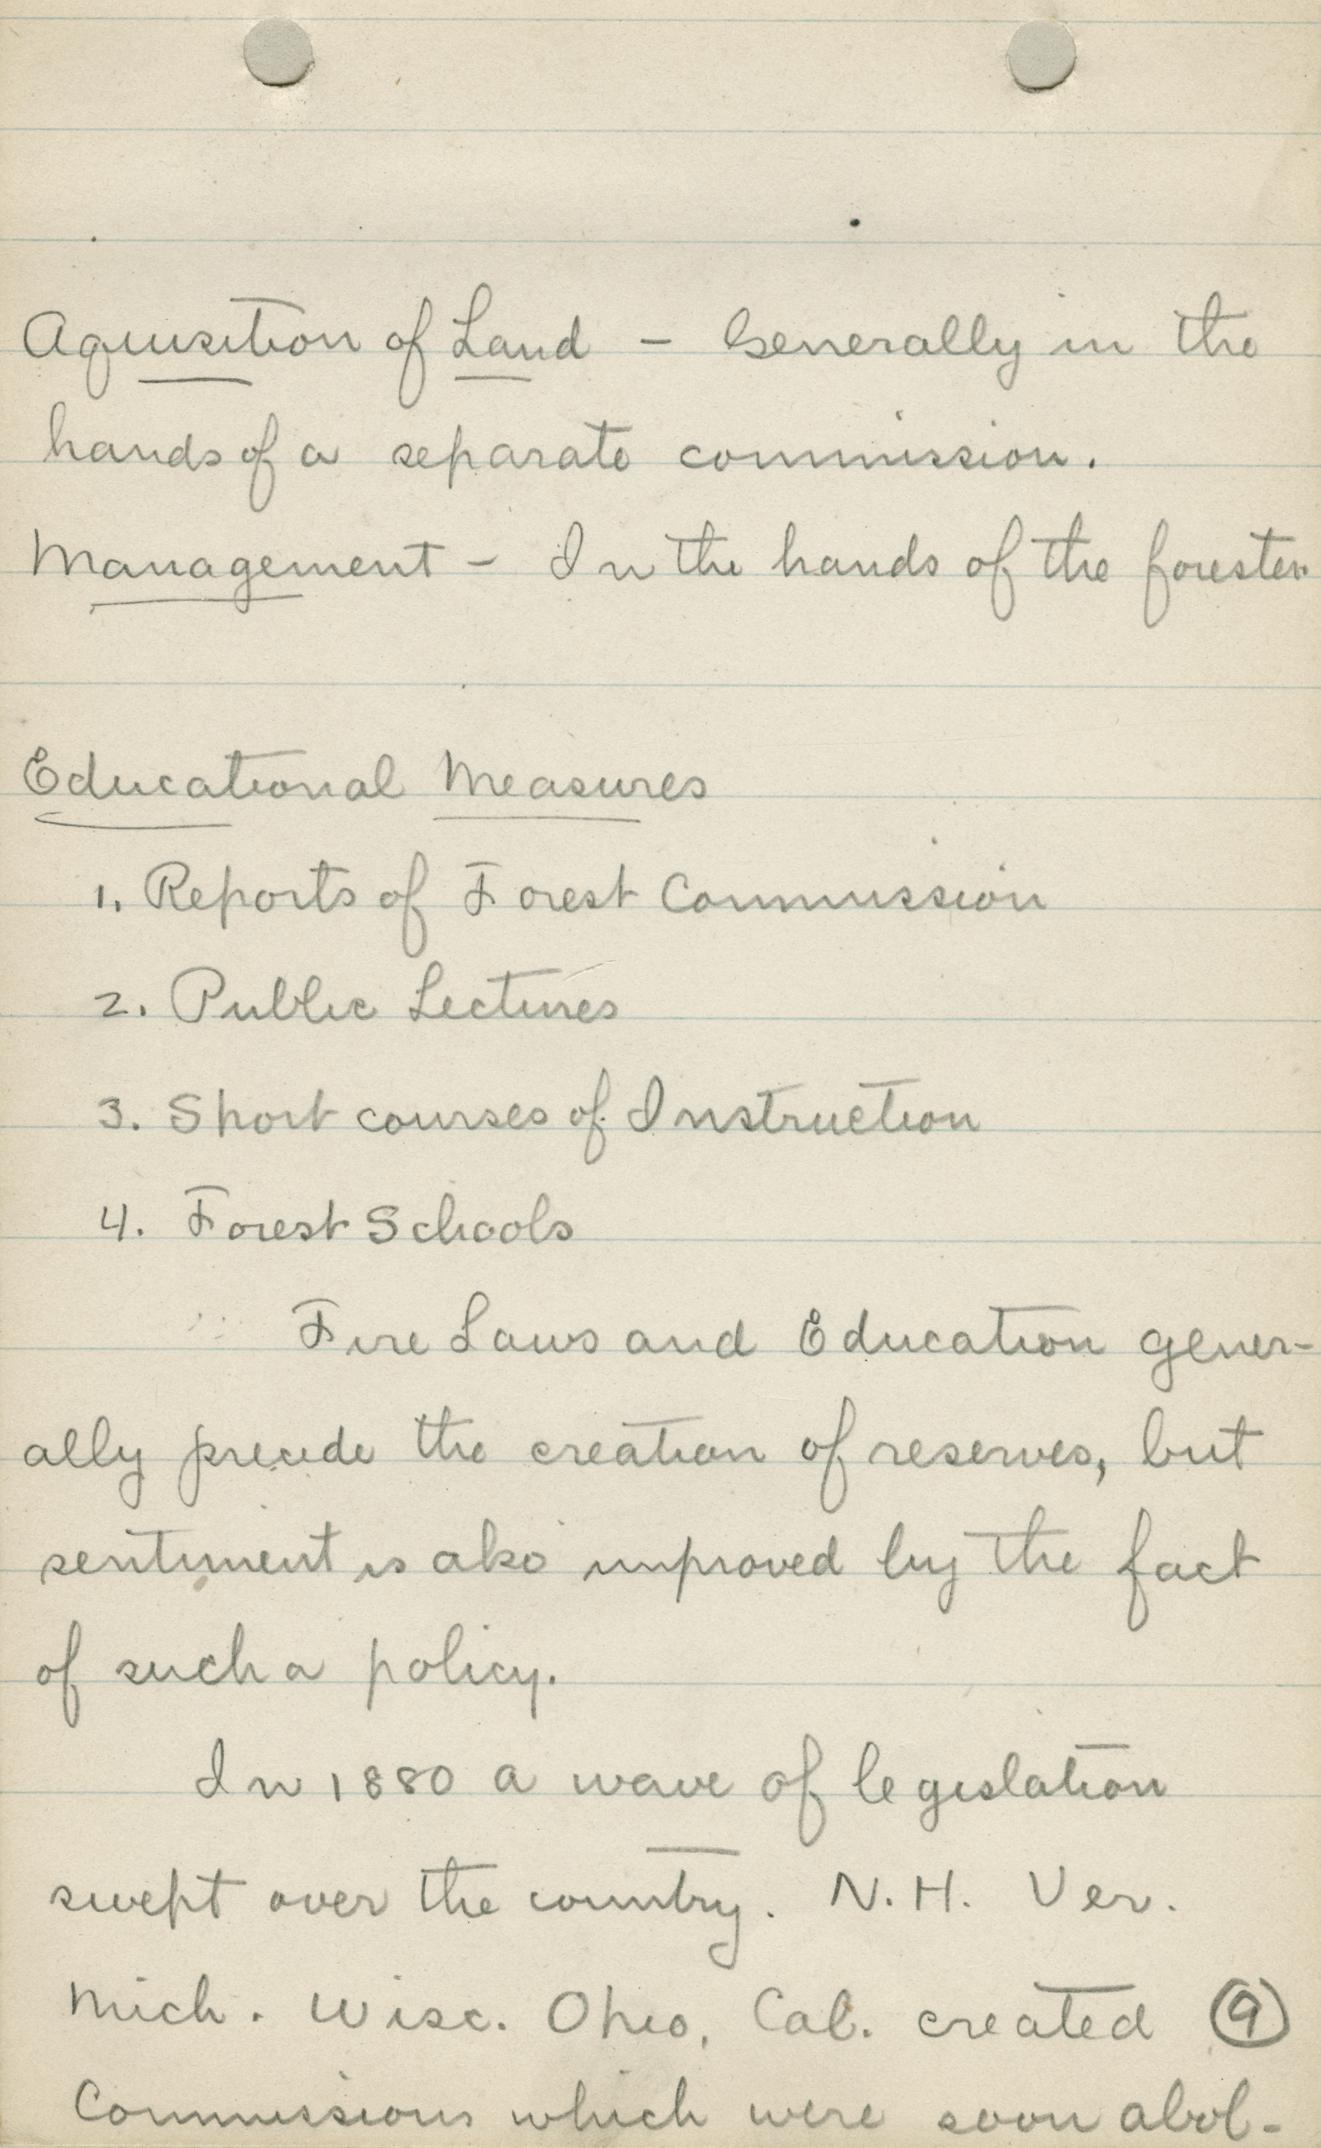 Aquisition of Land - Generally in the
hands of a separate commission.
Management - In the hands of the forester
Educational Measures
1. Reports of Forest Commission
2. Public Lectures
3. Short courses of Instruction
4. Forest Schools
Fire Laws and Education gener-
ally precede the creation of reserves, but
sentiment is also improved by the fact
of such a policy.
In 1880 a wave of legislation
swept over the country. N.H. Ver.
Mich. Wisc. Ohio, Cal. created 9
Commissions which were soon abol-